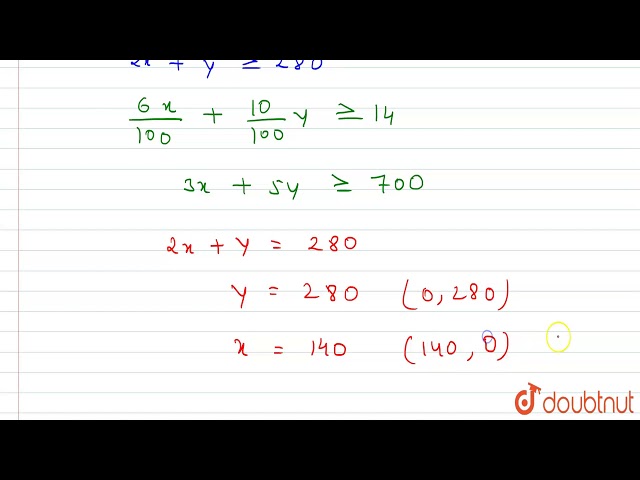 2x + y ≥ 280
6x/100 + 10/100 y ≥ 14
3x + 5y ≥ 700
2x + y = 280
y = 280 (0, 280)
x = 140 (140, 0)
doubtnut